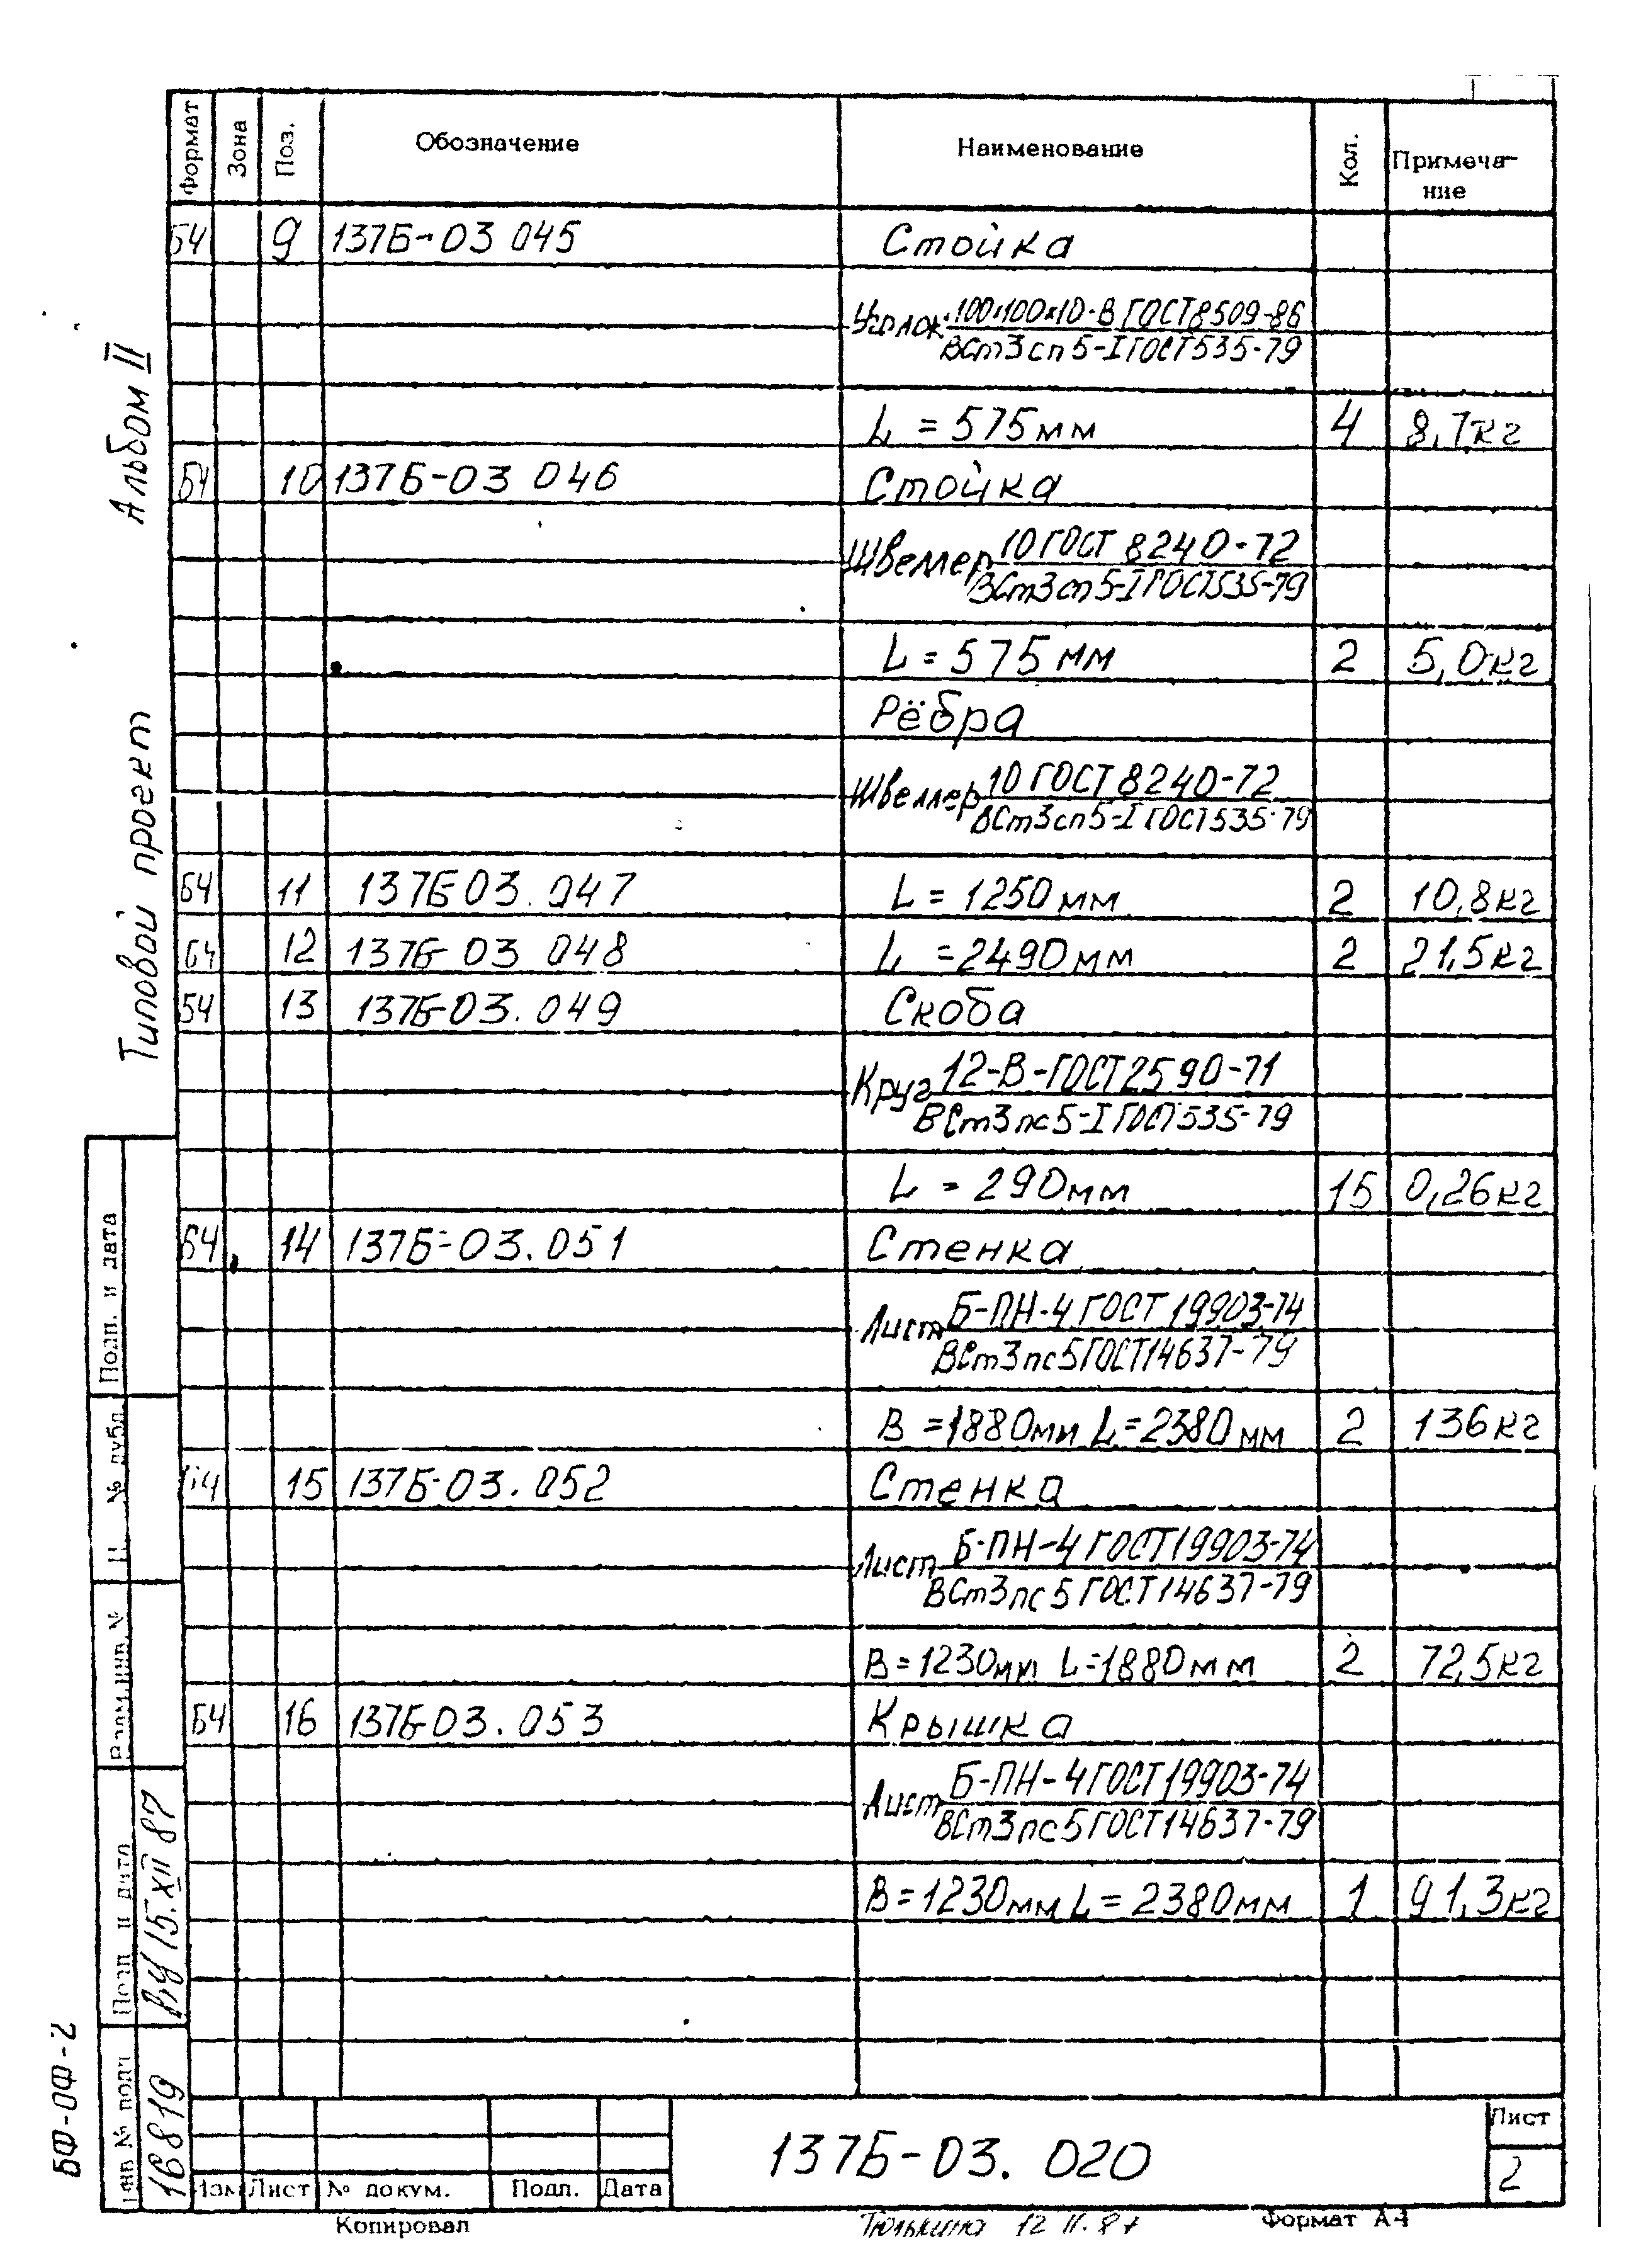 Формат Зона Поз. Обозначение Наименование Кол. Примеча-
ние
БЧ 9 137Б-03 045 Стойка
Уголок 100х100х10-В ГОСТ 8509-86
ВСт3сп5-I ГОСТ 535-79
L = 575мм 4 8,7кг
БЧ 10 137Б-03 046 Стойка
Швеллер 10 ГОСТ 8240-72
ВСт3сп5-I ГОСТ 535-79
L = 575мм 2 5,0кг
Рёбра
Швеллер 10 ГОСТ 8240-72
ВСт3сп5-I ГОСТ 535-79
БЧ 11 137Б-03.047 L = 1250мм 2 10,8кг
БЧ 12 137Б-03 048 L = 2490мм 2 21,5кг
БЧ 13 137Б-03.049 Скоба
Круг 12-В-ГОСТ 2590-71
ВСт3пс5-I ГОСТ 535-79
L = 290мм 15 0,26кг
БЧ 14 137Б-03.051 Стенка
Лист Б-ПН-4 ГОСТ 19903-74
ВСт3пс5 ГОСТ 14637-79
В = 1880мм L = 2380мм 2 136кг
БЧ 15 137Б-03.052 Стенка
Лист Б-ПН-4 ГОСТ 19903-74
ВСт3пс5 ГОСТ 14637-79
В = 1230мм L = 1880мм 2 72,5кг
БЧ 16 137Б-03.053 Крышка
Лист Б-ПН-4 ГОСТ 19903-74
ВСт3пс5 ГОСТ 14637-79
В = 1230мм L = 2380мм 1 91,3кг
Типовой проект Альбом II
Подп. и дата
№ дубл
Взам.инв. №
Подп и дата 15.XII 87
Инв № подл 16819
БФ-ОФ-2
137Б-03.020
Лист
2
Изм Лист № докум. Подп. Дата
Копировал 12 Формат А4